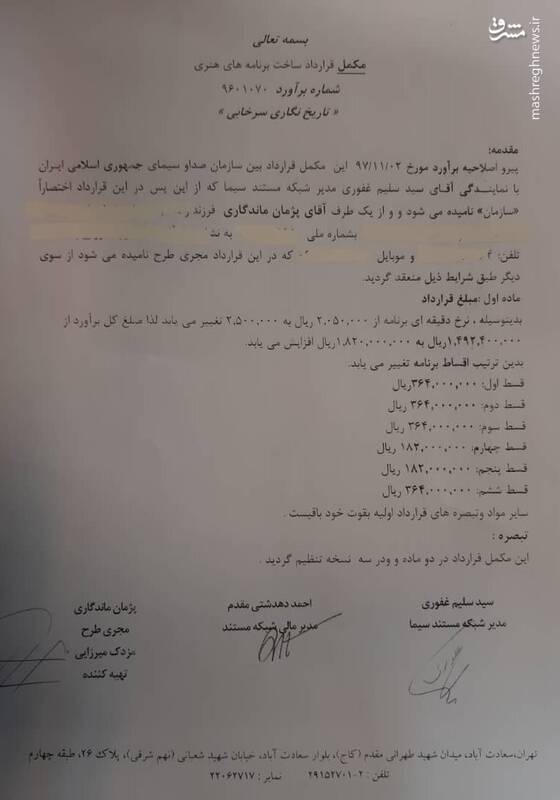 مشرق
mashreghnews.ir
بسمه تعالی
مکمل قرارداد ساخت برنامه های هنری
شماره برآورد ۹۶۰۱۰۷۰
« تاریخ نگاری سرخابی »
مقدمه:
پیرو اصلاحیه برآورد مورخ ۹۷/۱۱/۰۲ این مکمل قرارداد بین سازمان صداو سیمای جمهوری اسلامی ایران
با نمایندگی آقای سید سلیم غفوری مدیر شبکه مستند سیما که از این پس در این قرارداد اختصاراً
«سازمان» نامیده می شود و و از یک طرف آقای پژمان ماندگاری فرزند
بشماره ملی به
تلفن: و موبایل که در این قرارداد مجری طرح نامیده می شود از سوی
دیگر طبق شرایط ذیل منعقد گردید.
ماده اول: مبلغ قرارداد
بدینوسیله ، نرخ دقیقه ای برنامه از ۲,۰۵۰,۰۰۰ ریال به ۲,۵۰۰,۰۰۰ تغییر می یابد لذا مبلغ کل برآورد از
۱,۴۹۲,۴۰۰,۰۰۰ریال به ۱,۸۲۰,۰۰۰,۰۰۰ریال افزایش می یابد.
بدین ترتیب اقساط برنامه تغییر می یابد.
قسط اول: ۳۶۴,۰۰۰,۰۰۰ریال
قسط دوم: ۳۶۴,۰۰۰,۰۰۰ ریال
قسط سوم: ۳۶۴,۰۰۰,۰۰۰ ریال
قسط چهارم: ۱۸۲,۰۰۰,۰۰۰ ریال
قسط پنجم: ۱۸۲,۰۰۰,۰۰۰ ریال
قسط ششم: ۳۶۴,۰۰۰,۰۰۰ ریال
سایر مواد وتبصره های قرارداد اولیه بقوت خود باقیست .
تبصره :
این مکمل قرارداد در دو ماده و ودر سه نسخه تنظیم گردید .
سید سلیم غفوری
مدیر شبکه مستند سیما
احمد دهدشتی مقدم
مدیر مالی شبکه مستند
پژمان ماندگاری
مجری طرح
مزدک میرزایی
تهیه کننده
تهران،سعادت آباد، میدان شهید طهرانی مقدم (کاج)، بلوار سعادت آباد، خیابان شهید شعبانی (نهم شرقی)، پلاک ۲۶، طبقه چهارم
تلفن : ۲-۲۹۱۵۲۷۰۱ نمابر : ۲۲۰۶۲۷۱۷